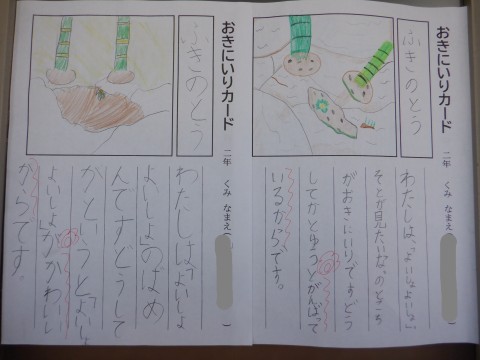 おきにいりカード
二年　くみ　なまえ（　）
ふきのとう
わたしは、「よいしょ、よいしょ。
そとが見たいな。」のところ
がおきにいりです。どう
してかとゆうとがんばって
いるからです。
おきにいりカード
二年　くみ　なまえ（　）
ふきのとう
わたしは「よいしょ
よいしょ」のばめ
んです。どうして
かというと「よいしょ
よいしょ」がかわいい
からです。